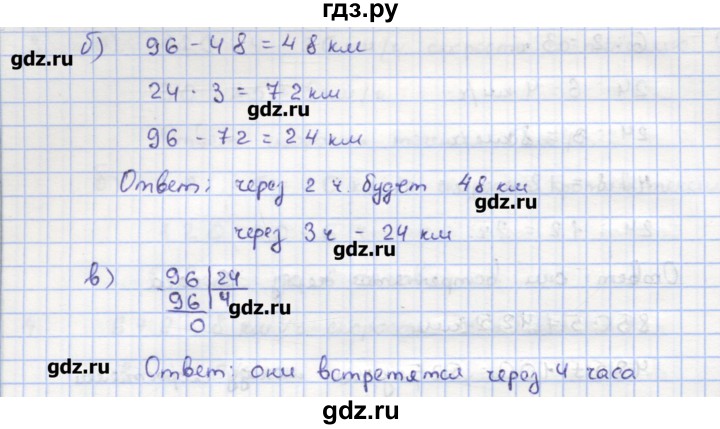 гдз.ру
б) 96 - 48 = 48 км
gdz.ru
24 · 3 = 72 км
gdz.ru
96 - 72 = 24 км
Ответ: через 2 ч. будет 48 км
gdz.ru
через 3 ч - 24 км
gdz.ru
в) 96 | 24
96 | 4
gdz.ru
0
gdz.ru
Ответ: они встретятся через 4 часа
gdz.ru
gdz.ru